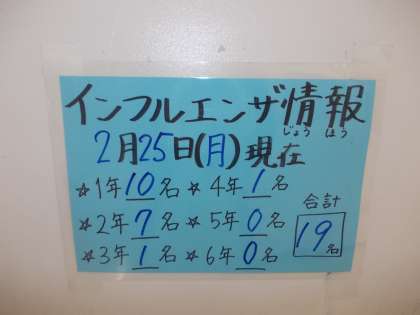 インフルエンザ情報
じょう ほう
2月25日(月)現在
☆1年10名 ☆4年1名
☆2年7名 ☆5年0名
☆3年1名 ☆6年0名
合計
19名